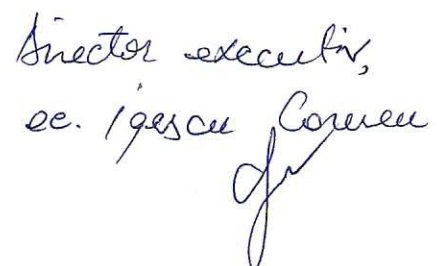 Director executiv,
ec. Igescu Corneu